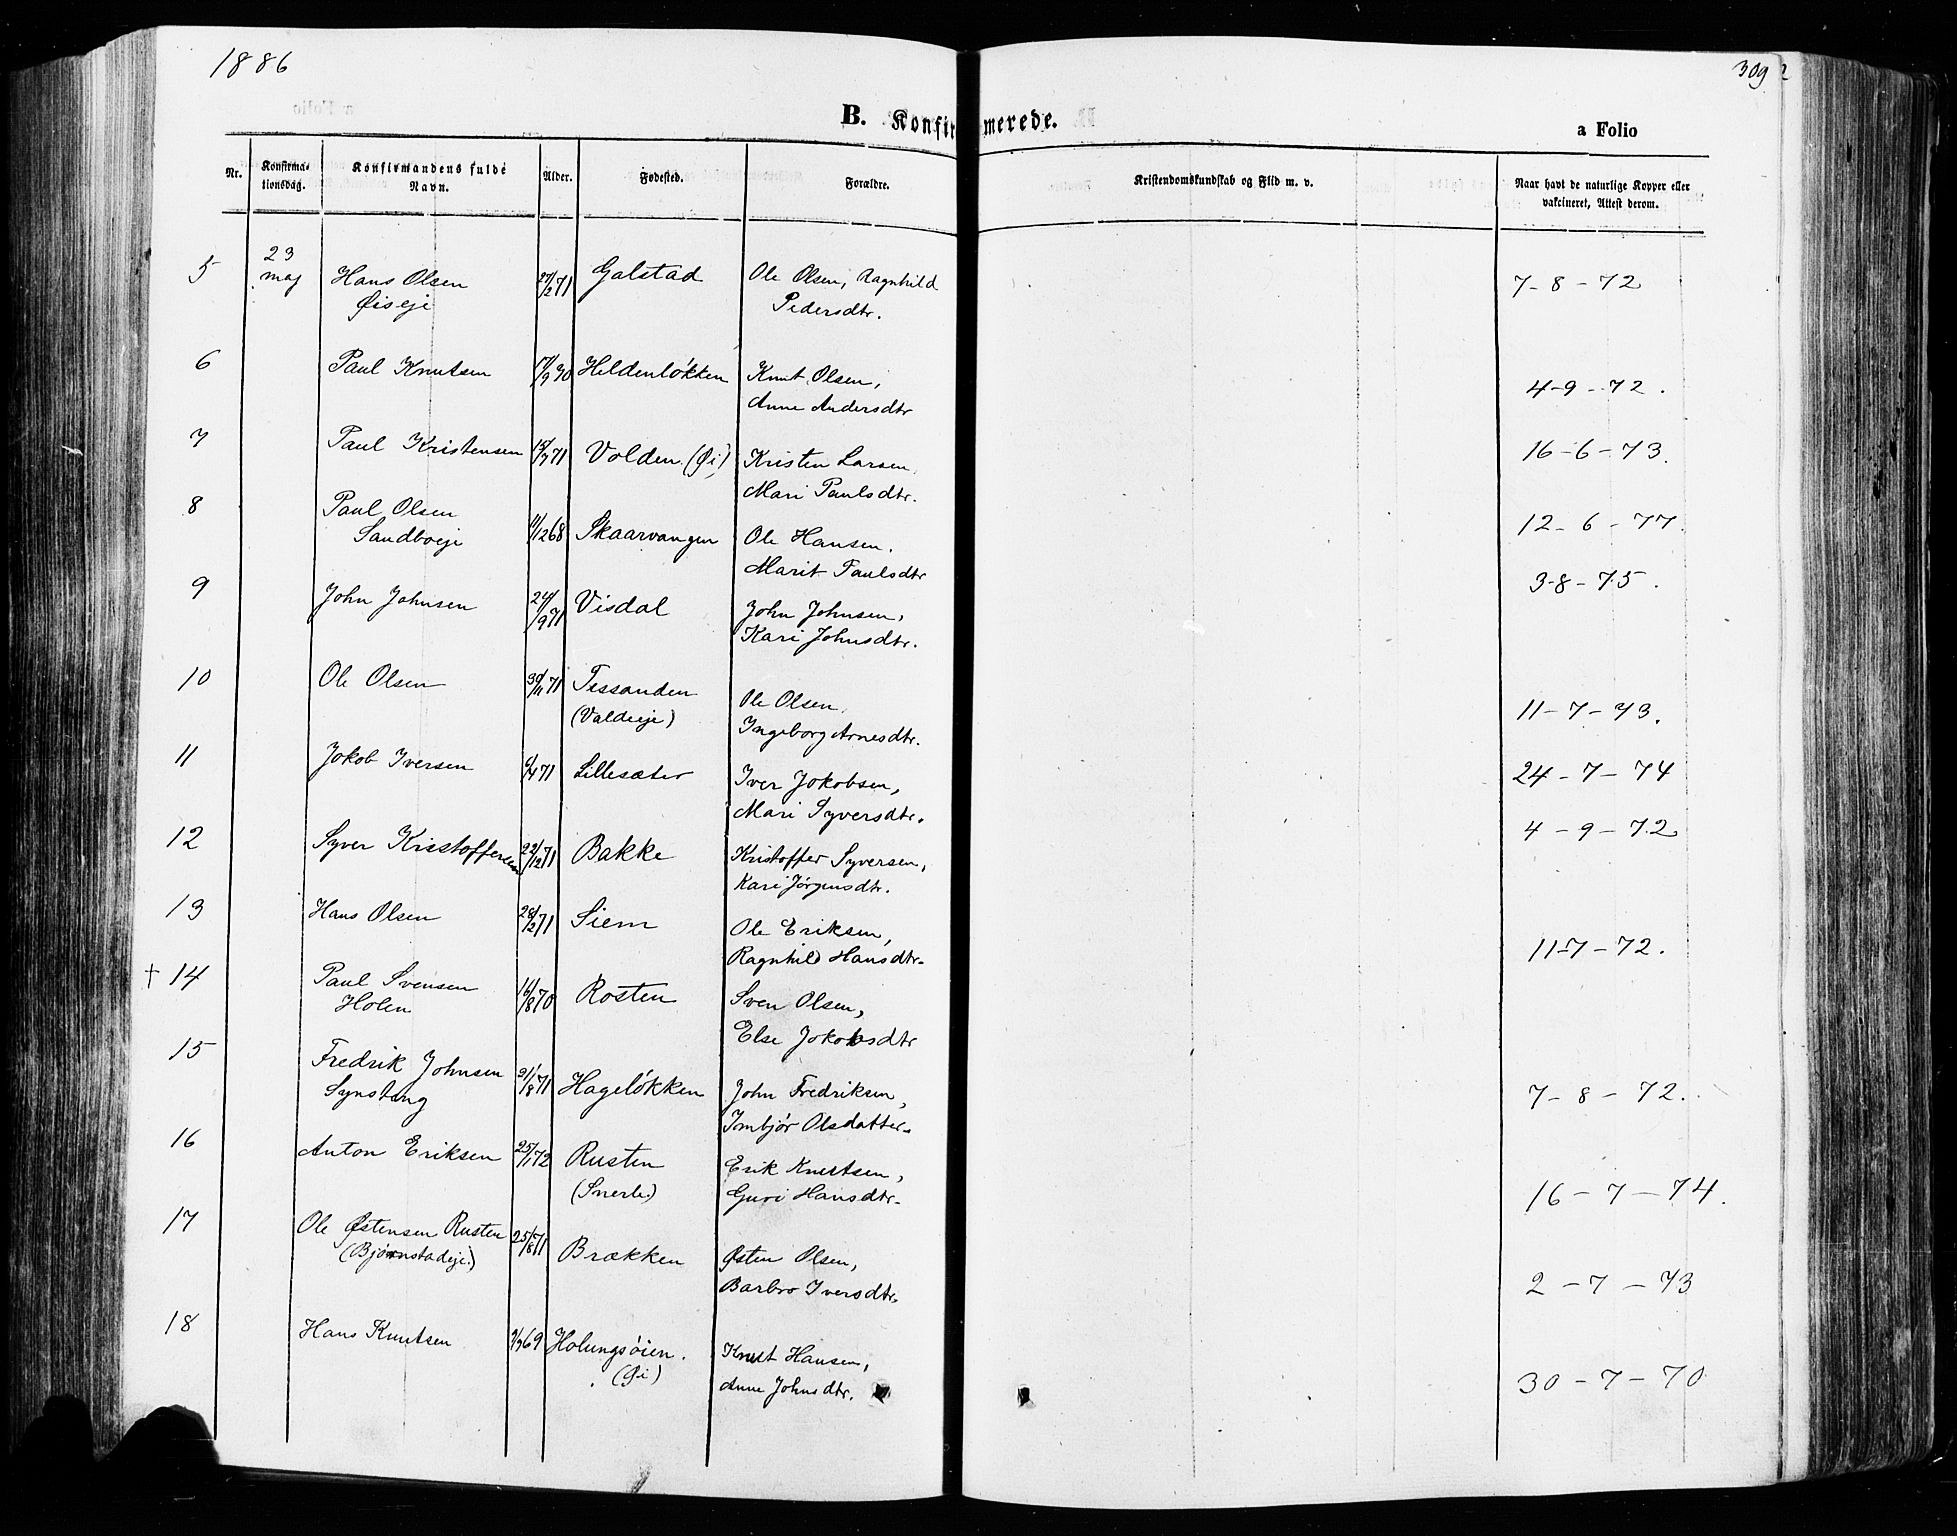 1886
309
B. Konfirmerede.
a Folio
Nr.
Konfirmationsdag.
Konfirmandens fulde Navn.
Alder.
Fødested.
Forældre.
Kristendomskundskab og Flid m. v.
Naar havt de naturlige Kopper eller vakcineret, Attest derom.
5 23 maj Hans Olsen 27/2 71 Galstad Ole Olsen, Ragnhild 7-8-72
Øiseje Pedersdtr.
6 Paul Knutsen 17/9 70 Heldenløkken Knut Olsen, 4-9-72.
Anne Andersdtr
7 Paul Kristensen 15/7 71 Volden (Øi) Kristen Larsen, 16-6-73.
Mari Paulsdtr.
8 Paul Olsen 11/12 68 Skaarvangen Ole Hansen, 12-6-77.
Sandboeje Marit Paulsdtr
9 John Johnsen 24/9 71 Visdal John Johnsen, 3-8-75.
Kari Johnsdtr.
10 Ole Olsen 30/11 71 Tessanden Ole Olsen, 11-7-73.
(Valdeeje) Ingeborg Arnesdtr.
11 Jokob Iversen 6/4 71 Lillesæter Iver Jokobsen, 24-7-74
Mari Syversdtr.
12 Syver Kristoffersen 22/12 71 Bakke Kristoffer Syversen, 4-9-72
Kari Jørgensdtr.
13 Hans Olsen 28/2 71 Siem Ole Eriksen, 11-7-72.
Ragnhild Hansdtr.
† 14 Paul Svensen 16/8 70 Rosten Sven Olsen,
Holen Else Jokobsdtr
15 Fredrik Johnsen 31/8 71 Hageløkken John Fredriksen, 7-8-72.
Synsteng Imbjør Olsdatter.
16 Anton Eriksen 25/1 72 Rusten Erik Knutsen, 16-7-74.
(Snerle) Guri Hansdtr.
17 Ole Østensen Rusten 25/8 71 Brækken Østen Olsen, 2-7-73
(Bjørnstadeje.) Barbro Iversdtr.
18 Hans Knutsen 69 Holungsøien. Knut Hansen, 30-7-70
(Øi) Anne Johnsdtr.